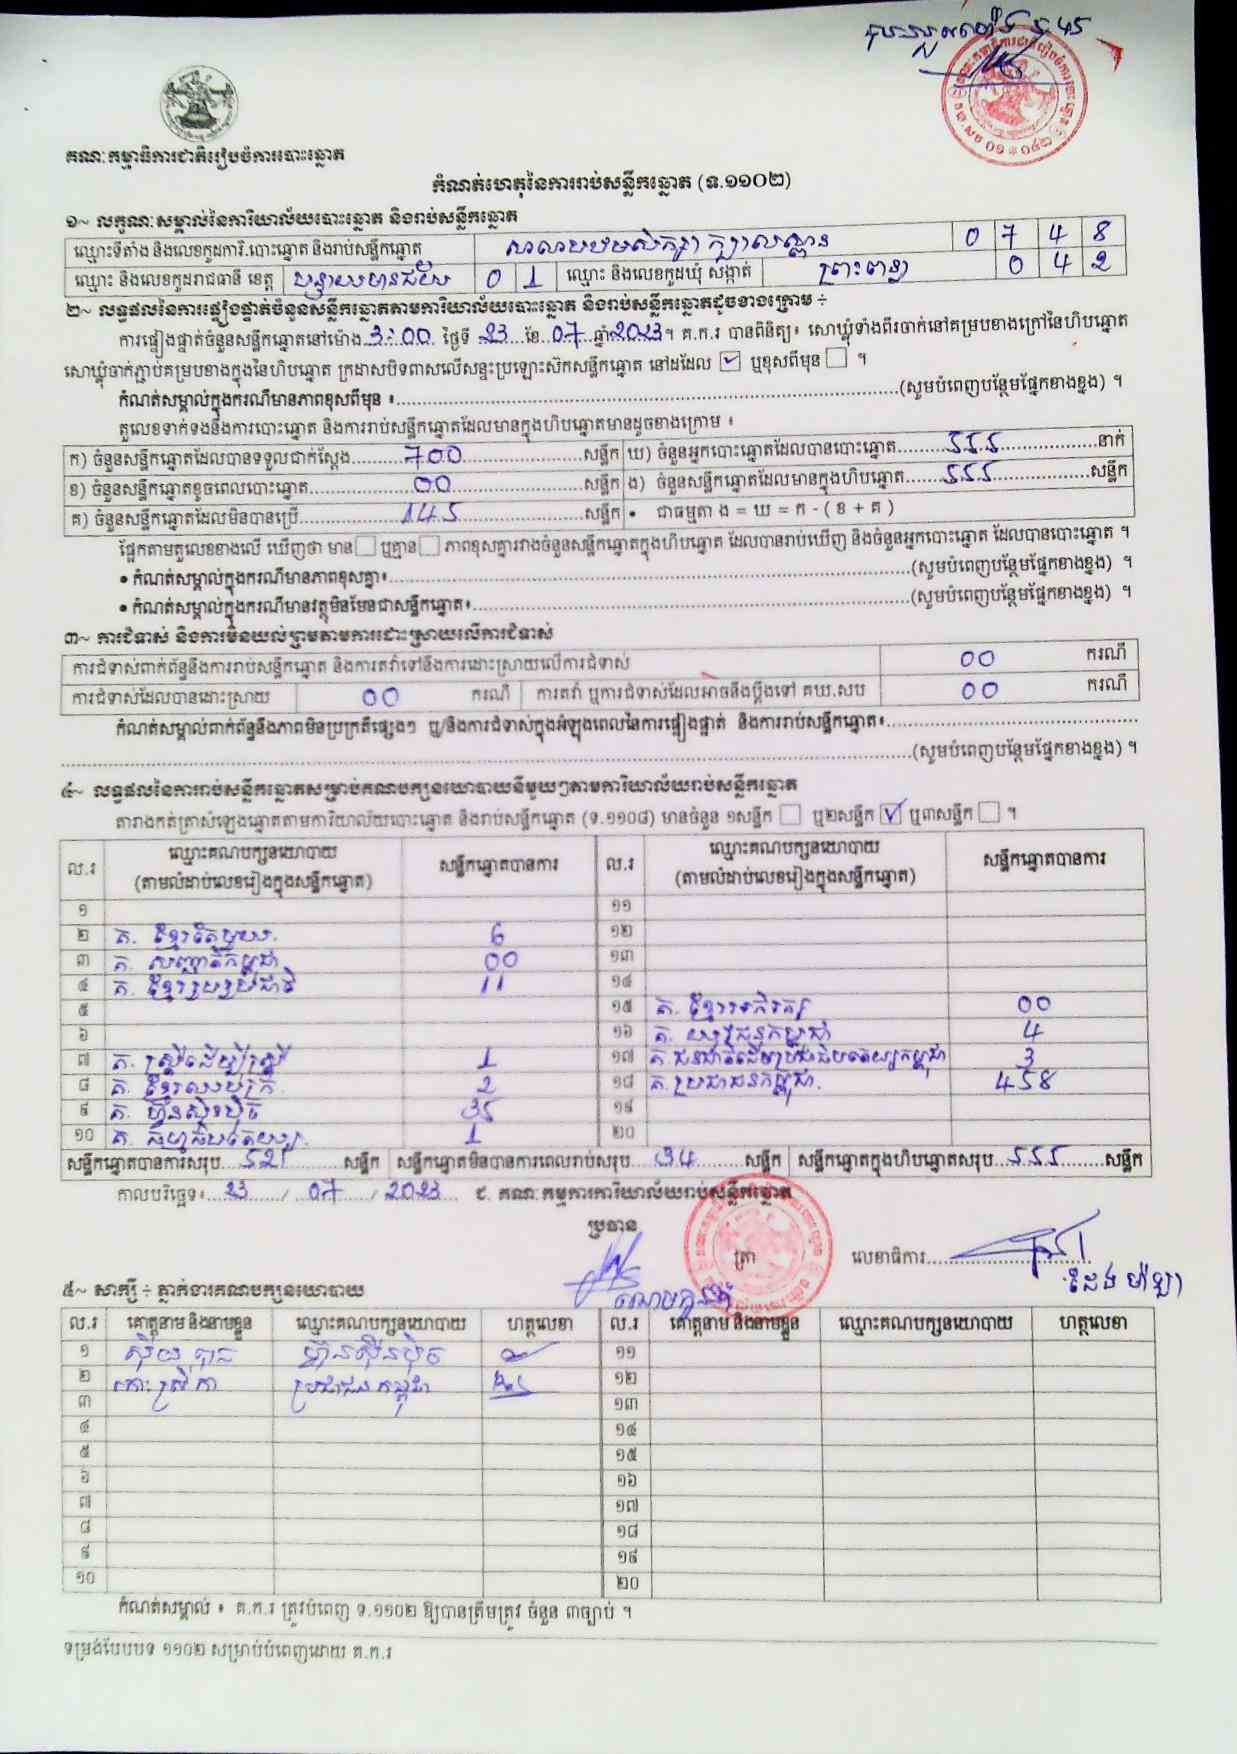 គណៈកម្មាធិការជាតិរៀបចំការបោះឆ្នោត
កំណត់ហេតុនៃការរាប់សន្លឹកឆ្នោត (ទ.១១០២)
១~ លក្ខណៈសម្គាល់នៃការិយាល័យបោះឆ្នោត និងរាប់សន្លឹកឆ្នោត
ឈ្មោះទីតាំង និងលេខកូដការិ.បោះឆ្នោត និងរាប់សន្លឹកឆ្នោត សាលាបឋមសិក្សា 0 7 4 8
ឈ្មោះ និងលេខកូដរាជធានី ខេត្ត បន្ទាយមានជ័យ 0 1 ឈ្មោះ និងលេខកូដឃុំ សង្កាត់ 0 4 2
២~ លទ្ធផលនៃការផ្ទៀងផ្ទាត់ចំនួនសន្លឹកឆ្នោតតាមការិយាល័យបោះឆ្នោត និងរាប់សន្លឹកឆ្នោតដូចខាងក្រោម ÷
ការផ្ទៀងផ្ទាត់ចំនួនសន្លឹកឆ្នោតនៅម៉ោង 3:00 ថ្ងៃទី 23 ខែ 07 ឆ្នាំ 2023។ គ.ក.រ បានពិនិត្យ៖ សោឃ្លុំទាំងពីរចាក់នៅគម្របខាងក្រៅនៃហិបឆ្នោត
សោឃ្លុំចាក់ភ្ជាប់គម្របខាងក្នុងនៃហិបឆ្នោត ក្រដាសបិទពាសលើសន្ទះប្រឡោះស៊កសន្លឹកឆ្នោត នៅដដែល ☑ ឬខុសពីមុន ☐ ។
កំណត់សម្គាល់ក្នុងករណីមានភាពខុសពីមុន ៖ (សូមបំពេញបន្ថែមផ្នែកខាងខ្នង) ។
តួលេខទាក់ទងនឹងការបោះឆ្នោត និងការរាប់សន្លឹកឆ្នោតដែលមានក្នុងហិបឆ្នោតមានដូចខាងក្រោម ៖
ក) ចំនួនសន្លឹកឆ្នោតដែលបានទទួលជាក់ស្តែង 700 សន្លឹក ឃ) ចំនួនអ្នកបោះឆ្នោតដែលបានបោះឆ្នោត 555 នាក់
ខ) ចំនួនសន្លឹកឆ្នោតខូចពេលបោះឆ្នោត 00 សន្លឹក ង) ចំនួនសន្លឹកឆ្នោតដែលមានក្នុងហិបឆ្នោត 555 សន្លឹក
គ) ចំនួនសន្លឹកឆ្នោតដែលមិនបានប្រើ 145 សន្លឹក • ជាធម្មតា ង = ឃ = ក - ( ខ + គ )
ផ្អែកតាមតួលេខខាងលើ ឃើញថា មាន ☐ ឬគ្មាន ☐ ភាពខុសគ្នារវាងចំនួនសន្លឹកឆ្នោតក្នុងហិបឆ្នោត ដែលបានរាប់ឃើញ និងចំនួនអ្នកបោះឆ្នោត ដែលបានបោះឆ្នោត ។
• កំណត់សម្គាល់ក្នុងករណីមានភាពខុសគ្នា៖ (សូមបំពេញបន្ថែមផ្នែកខាងខ្នង) ។
• កំណត់សម្គាល់ក្នុងករណីមានវត្ថុមិនមែនជាសន្លឹកឆ្នោត៖ (សូមបំពេញបន្ថែមផ្នែកខាងខ្នង) ។
៣~ ការជំទាស់ និងការមិនយល់ព្រមតាមការដោះស្រាយលើការជំទាស់
ការជំទាស់ពាក់ព័ន្ធនឹងការរាប់សន្លឹកឆ្នោត និងការតវ៉ាទៅនឹងការដោះស្រាយលើការជំទាស់ 00 ករណី
ការជំទាស់ដែលបានដោះស្រាយ 00 ករណី ការតវ៉ា ឬការជំទាស់ដែលអាចនឹងប្តឹងទៅ គឃ.សប 00 ករណី
កំណត់សម្គាល់ពាក់ព័ន្ធនឹងភាពមិនប្រក្រតីផ្សេងៗ ឬ/និងការជំទាស់ក្នុងអំឡុងពេលនៃការផ្ទៀងផ្ទាត់ និងការរាប់សន្លឹកឆ្នោត៖
(សូមបំពេញបន្ថែមផ្នែកខាងខ្នង) ។
៤~ លទ្ធផលនៃការរាប់សន្លឹកឆ្នោតសម្រាប់គណបក្សនយោបាយនីមួយៗតាមការិយាល័យរាប់សន្លឹកឆ្នោត
តារាងកត់ត្រាសំឡេងឆ្នោតតាមការិយាល័យបោះឆ្នោត និងរាប់សន្លឹកឆ្នោត (ទ.១១០៨) មានចំនួន ១សន្លឹក ☐ ឬ២សន្លឹក ☑ ឬ៣សន្លឹក ☐ ។
ល.រ ឈ្មោះគណបក្សនយោបាយ (តាមលំដាប់លេខរៀងក្នុងសន្លឹកឆ្នោត) សន្លឹកឆ្នោតបានការ ល.រ ឈ្មោះគណបក្សនយោបាយ (តាមលំដាប់លេខរៀងក្នុងសន្លឹកឆ្នោត) សន្លឹកឆ្នោតបានការ
១ ១១
២ គ. ខ្មែរតែមួយ 6 ១២
៣ គ. សញ្ជាតិកម្ពុជា 00 ១៣
៤ គ. ខ្មែររួបរួមជាតិ 11 ១៤
៥ ១៥ គ. ខ្មែរអភិរក្ស 00
៦ ១៦ គ. យុវជនកម្ពុជា 4
៧ គ. ស្ត្រីដើម្បីស្ត្រី 1 ១៧ គ. ជនជាតិដើមប្រជាធិបតេយ្យកម្ពុជា 3
៨ គ. ខ្មែរឈប់ក្រ 2 ១៨ គ. ប្រជាជនកម្ពុជា 458
៩ គ. ហ៊្វុនស៊ិនប៉ិច 35 ១៩
១០ គ. ធម្មាធិបតេយ្យ 1 ២០
សន្លឹកឆ្នោតបានការសរុប 521 សន្លឹក សន្លឹកឆ្នោតមិនបានការពេលរាប់សរុប 34 សន្លឹក សន្លឹកឆ្នោតក្នុងហិបឆ្នោតសរុប 555 សន្លឹក
កាលបរិច្ឆេទ៖ 23 / 07 / 2023 ជ. គណៈកម្មការការិយាល័យរាប់សន្លឹកឆ្នោត
ប្រធាន ត្រា លេខាធិការ
៥~ សាក្សី ÷ ភ្នាក់ងារគណបក្សនយោបាយ
ល.រ គោត្តនាម និងនាមខ្លួន ឈ្មោះគណបក្សនយោបាយ ហត្ថលេខា ល.រ គោត្តនាម និងនាមខ្លួន ឈ្មោះគណបក្សនយោបាយ ហត្ថលេខា
១ ហ៊្វុនស៊ិនប៉ិច ១១
២ ប្រជាជនកម្ពុជា ១២
៣ ១៣
៤ ១៤
៥ ១៥
៦ ១៦
៧ ១៧
៨ ១៨
៩ ១៩
១០ ២០
កំណត់សម្គាល់ ៖ គ.ក.រ ត្រូវបំពេញ ទ.១១០២ ឱ្យបានត្រឹមត្រូវ ចំនួន ៣ច្បាប់ ។
ទម្រង់បែបបទ ១១០២ សម្រាប់បំពេញដោយ គ.ក.រ